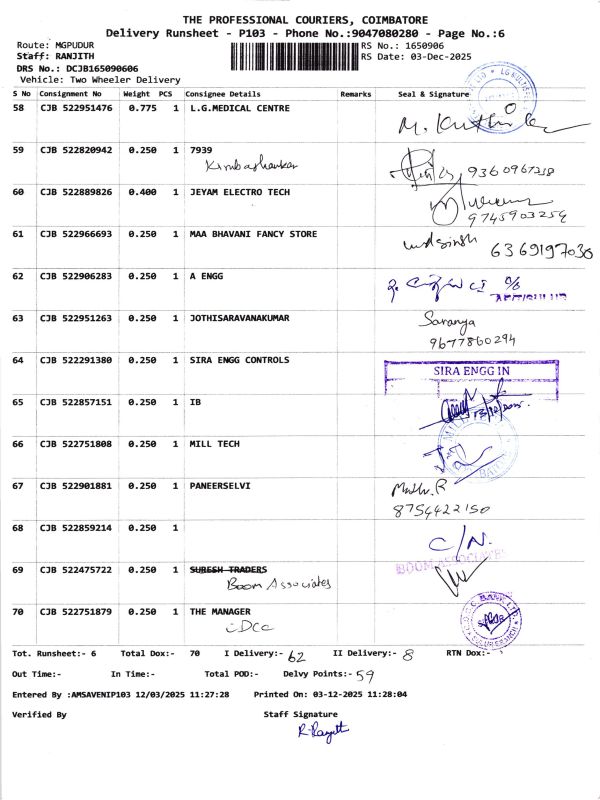 THE PROFESSIONAL COURIERS, COIMBATORE
Delivery Runsheet - P103 - Phone No.:9047080280 - Page No.:6
Route: MGPUDUR RS No.: 1650906
Staff: RANJITH RS Date: 03-Dec-2025
DRS No.: DCJB165090606
Vehicle: Two Wheeler Delivery
S No Consignment No Weight PCS Consignee Details Remarks Seal & Signature
58 CJB 522951476 0.775 1 L.G.MEDICAL CENTRE
59 CJB 522820942 0.250 1 7939
9360967218
60 CJB 522889826 0.400 1 JEYAM ELECTRO TECH
9745903254
61 CJB 522966693 0.250 1 MAA BHAVANI FANCY STORE
6369197030
62 CJB 522906283 0.250 1 A ENGG
63 CJB 522951263 0.250 1 JOTHISARAVANAKUMAR Saranya
9677860294
64 CJB 522291380 0.250 1 SIRA ENGG CONTROLS
SIRA ENGG IN
65 CJB 522857151 0.250 1 IB
66 CJB 522751808 0.250 1 MILL TECH
67 CJB 522901881 0.250 1 PANEERSELVI
8754422150
68 CJB 522859214 0.250 1
C/N.
BOOM ASSOCIATES
69 CJB 522475722 0.250 1 SURESH TRADERS
Boom Associates
70 CJB 522751879 0.250 1 THE MANAGER
CDCC
Tot. Runsheet:- 6 Total Dox:- 70 I Delivery:- 62 II Delivery:- 8 RTN Dox:-
Out Time:- In Time:- Total POD:- Delvy Points:- 59
Entered By :AMSAVENIP103 12/03/2025 11:27:28 Printed On: 03-12-2025 11:28:04
Verified By Staff Signature